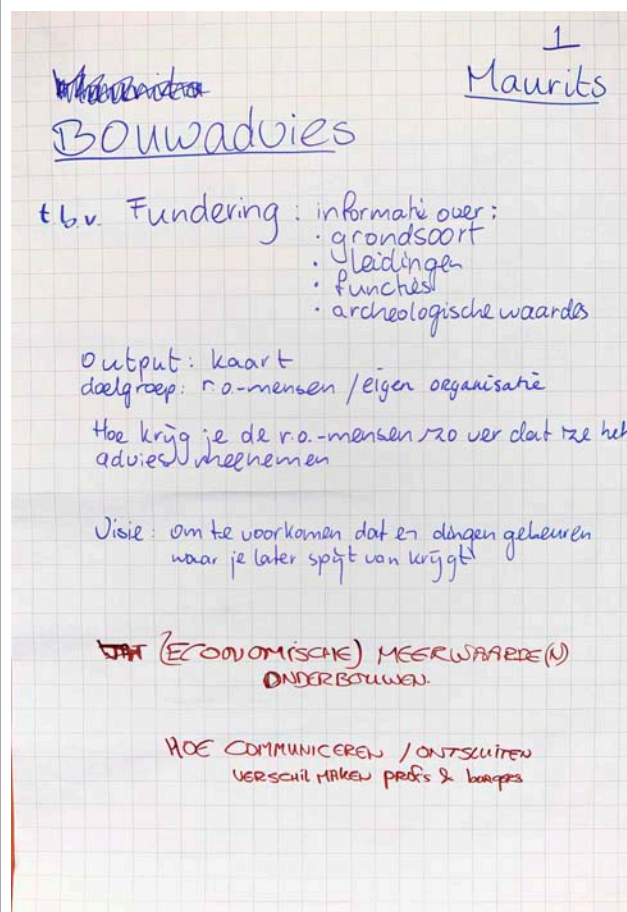 1
Maurits
Bouwadvies
t.b.v. Fundering : informatie over :
· grondsoort
· leidingen
· functies
· archeologische waardes
Output : kaart
doelgroep : r.o.-mensen / eigen organisatie
Hoe krijg je de r.o.-mensen zo ver dat ze het
advies meenemen
Visie : om te voorkomen dat er dingen gebeuren
waar je later spijt van krijgt
(ECONOMISCHE) MEERWAARDE(N)
ONDERBOUWEN.
HOE COMMUNICEREN / ONTSLUITEN
VERSCHIL MAKEN profs & burgers